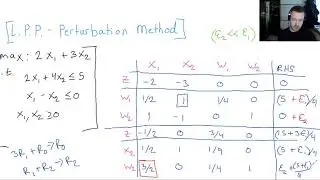 [L.P.P.- Perturbation Method]
(ε₂ << ε₁)
max: 2x₁ + 3x₂
2x₁ + 4x₂ ≤ 5
x₁ - x₂ ≤ 0
x₁, x₂ ≥ 0
3R₁ + R₀ → R₀
R₁ + R₂ → R₂
x₁ x₂ w₁ w₂ RHS
Z -2 -3 0 0 0
w₁ 1/2 1 1/4 0 (5 + ε₁)/4
w₂ 1 -1 0 1 0 + ε₂
Z -1/2 0 3/4 0
x₂ 1/2 1 1/4 0 (5 + ε₁)/4
w₂ 3/2 0 1/4 1